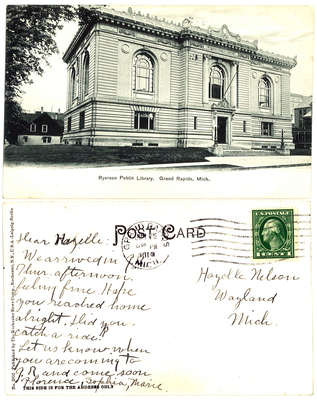 Ryerson Public Library, Grand Rapids, Mich.
POST CARD
U.S. POSTAGE
1 CENT 1
Dear Hazelle:
We arrived in G.R.
Thur. afternoon
feeling fine Hope
you reached home
alright. Did you
catch a ride?
Let us know when
you are coming to
G.R. and come soon
Florence, Sophia, Marie.
THIS SIDE IS FOR THE ADDRESS ONLY
Hazelle Nelson
Wayland
Mich.
MICH
Published by The Rochester News Company, Rochester, N.Y., U.S.A.-Leipzig-Berlin